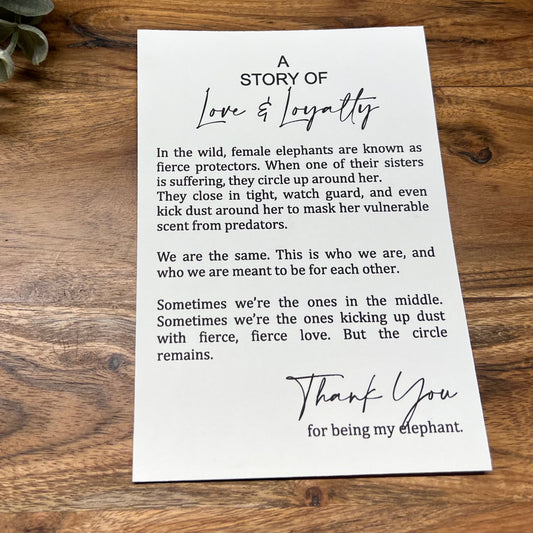 A
STORY OF
Love & Loyalty
In the wild, female elephants are known as
fierce protectors. When one of their sisters
is suffering, they circle up around her.
They close in tight, watch guard, and even
kick dust around her to mask her vulnerable
scent from predators.
We are the same. This is who we are, and
who we are meant to be for each other.
Sometimes we're the ones in the middle.
Sometimes we're the ones kicking up dust
with fierce, fierce love. But the circle
remains.
Thank You
for being my elephant.